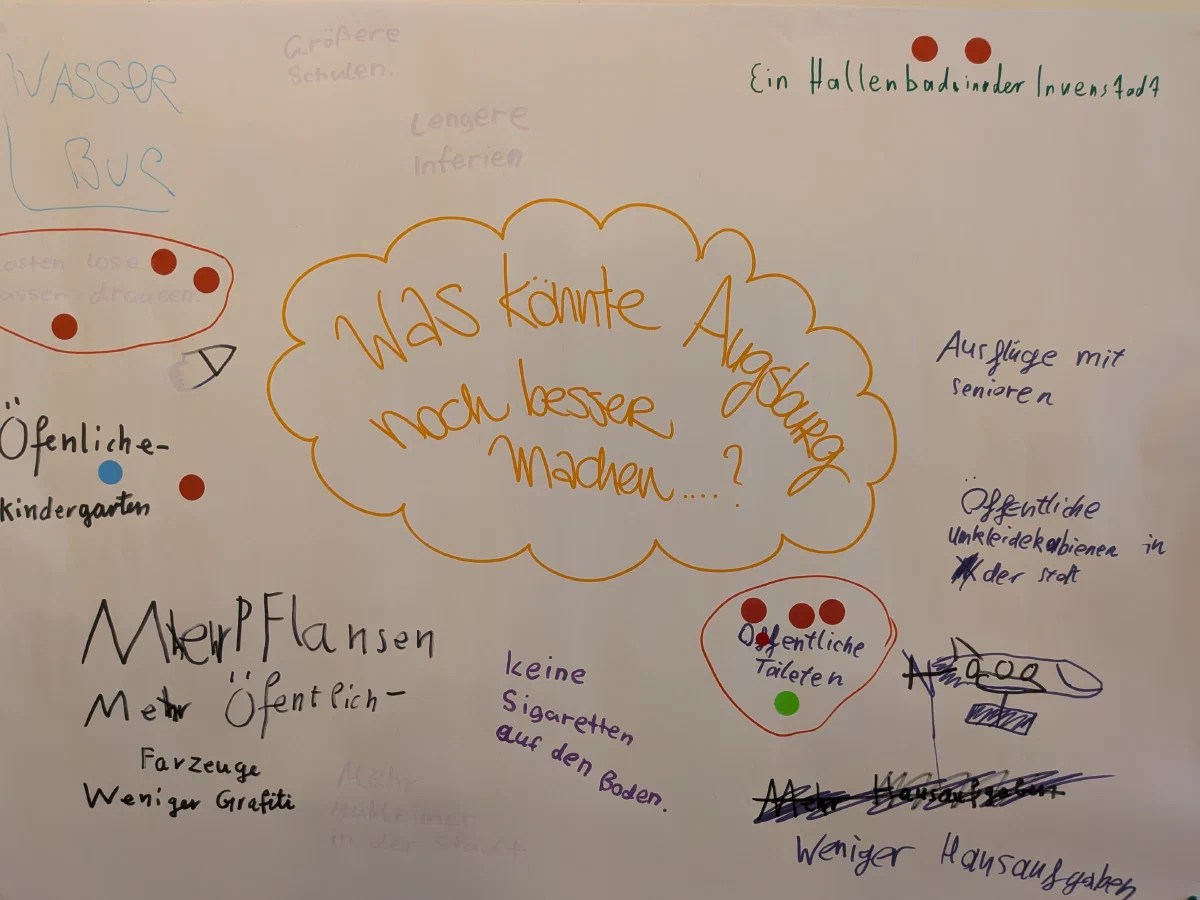 Größere
Schulen.
WASSER
BUS
Lengere
Inferien
Ein Hallenbad in der Invenstadt
Was könnte Augsburg
noch besser
machen....?
kosten lose
wasser draagen.
Ausflüge mit
senioren
Öfenliche-
kindergarten
Öffentliche
umkleidekabienen in
der stadt
Mehr PFlansen
Mehr Öfentlich-
Farzeuge
Weniger Grafiti
keine
Sigaretten
auf den Boden.
Öffentliche
Taileten
Mehr
Mülleimer
in der Stadt
Mehr Hausaufgaben
Weniger Hausaufgaben